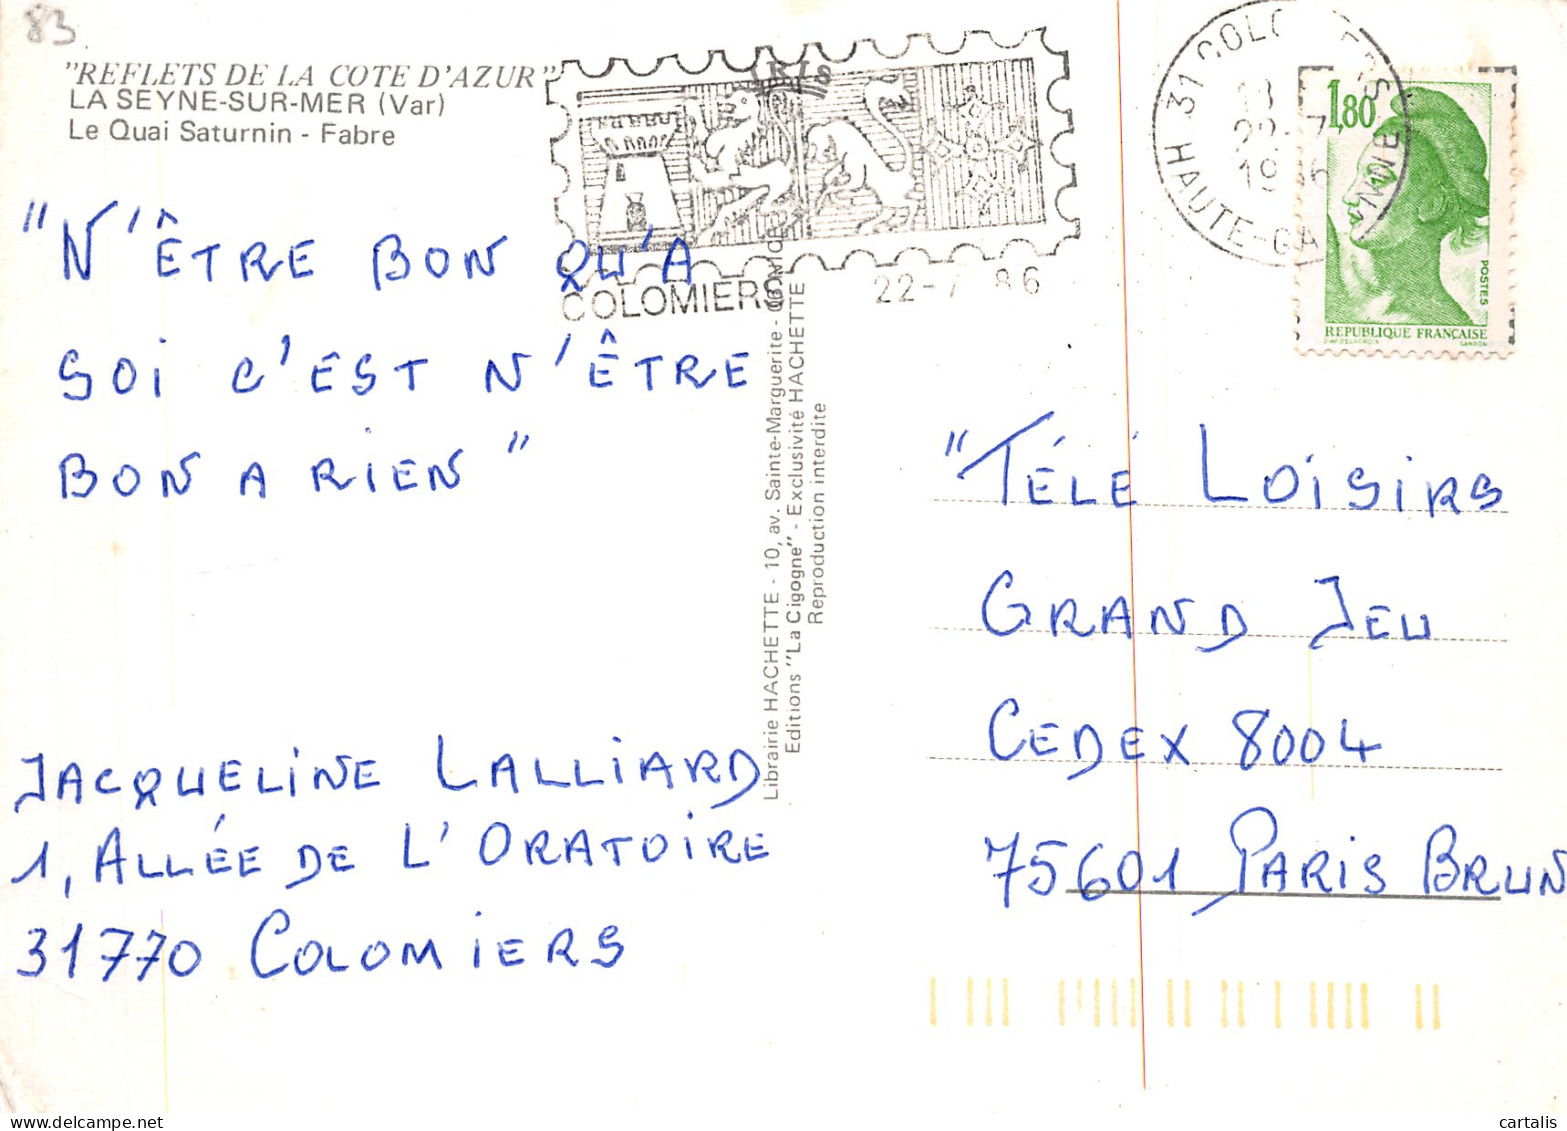 83
"REFLETS DE LA COTE D'AZUR"
LA SEYNE-SUR-MER (Var)
Le Quai Saturnin - Fabre
"N'ÊTRE BON QU'A
SOI C'EST N'ÊTRE
BON A RIEN"
JACQUELINE LALLIARD
1, ALLÉE DE L'ORATOIRE
31770 COLOMIERS
COLOMIERS
22-7 86
Librairie HACHETTE - 10, av. Sainte-Marguerite -
Editions "La Cigogne" - Exclusivité HACHETTE
Reproduction interdite
31 COLO
22-7
19 6
HAUTE-GA
1,80
POSTES
REPUBLIQUE FRANÇAISE
D'AP. DELACROIX
GANDON
"TÉLÉ LOISIRS
GRAND JEU
CEDEX 8004
75601 PARIS BRUN
cartalis